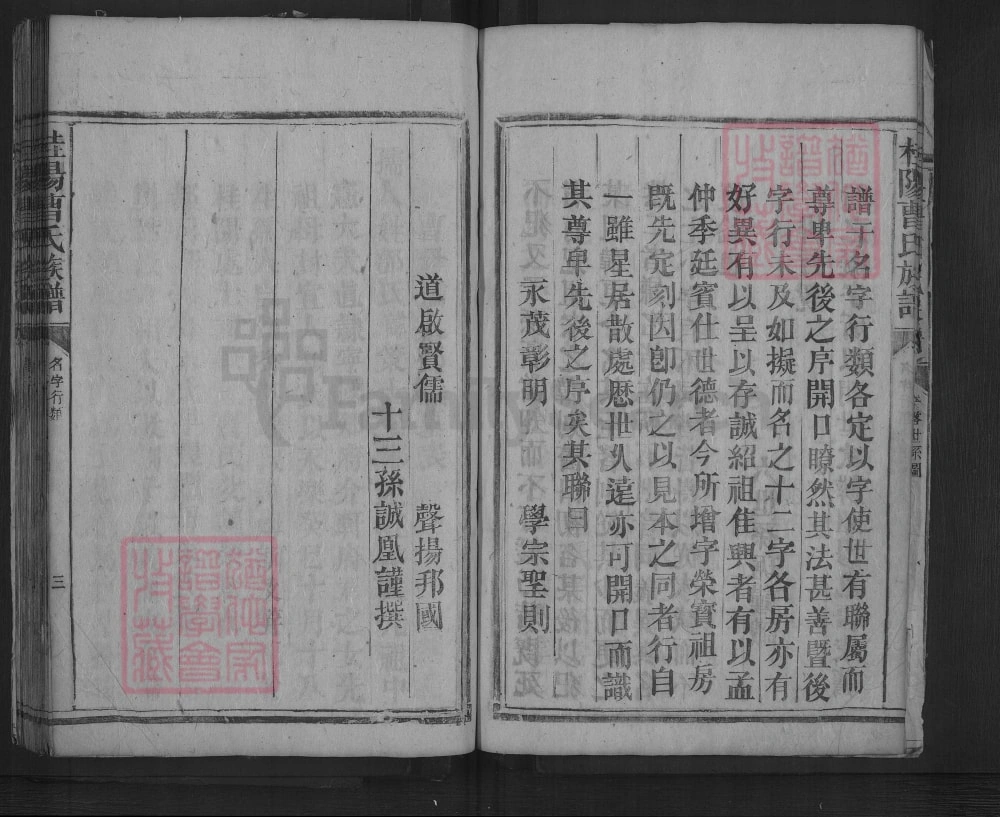 譜于名字行類各定以字使世有聯屬而
尊卑先後之序開口瞭然其法甚善暨後
字行未及如擬而名之十二字各房亦有
好異有以呈以存誠紹祖佳興者有以孟
仲季廷賓仕世德者今所增字榮寳祖房
既先定刻因卽仍之以見本之同者行自
雖星居散處厯世久遠亦可開口而識
其尊卑先後之序矣其聯曰
永茂彰明 學宗聖則
道啟賢儒 聲揚邦國
十三孫誠凰謹撰
桂陽曹氏族譜
名字行類
三